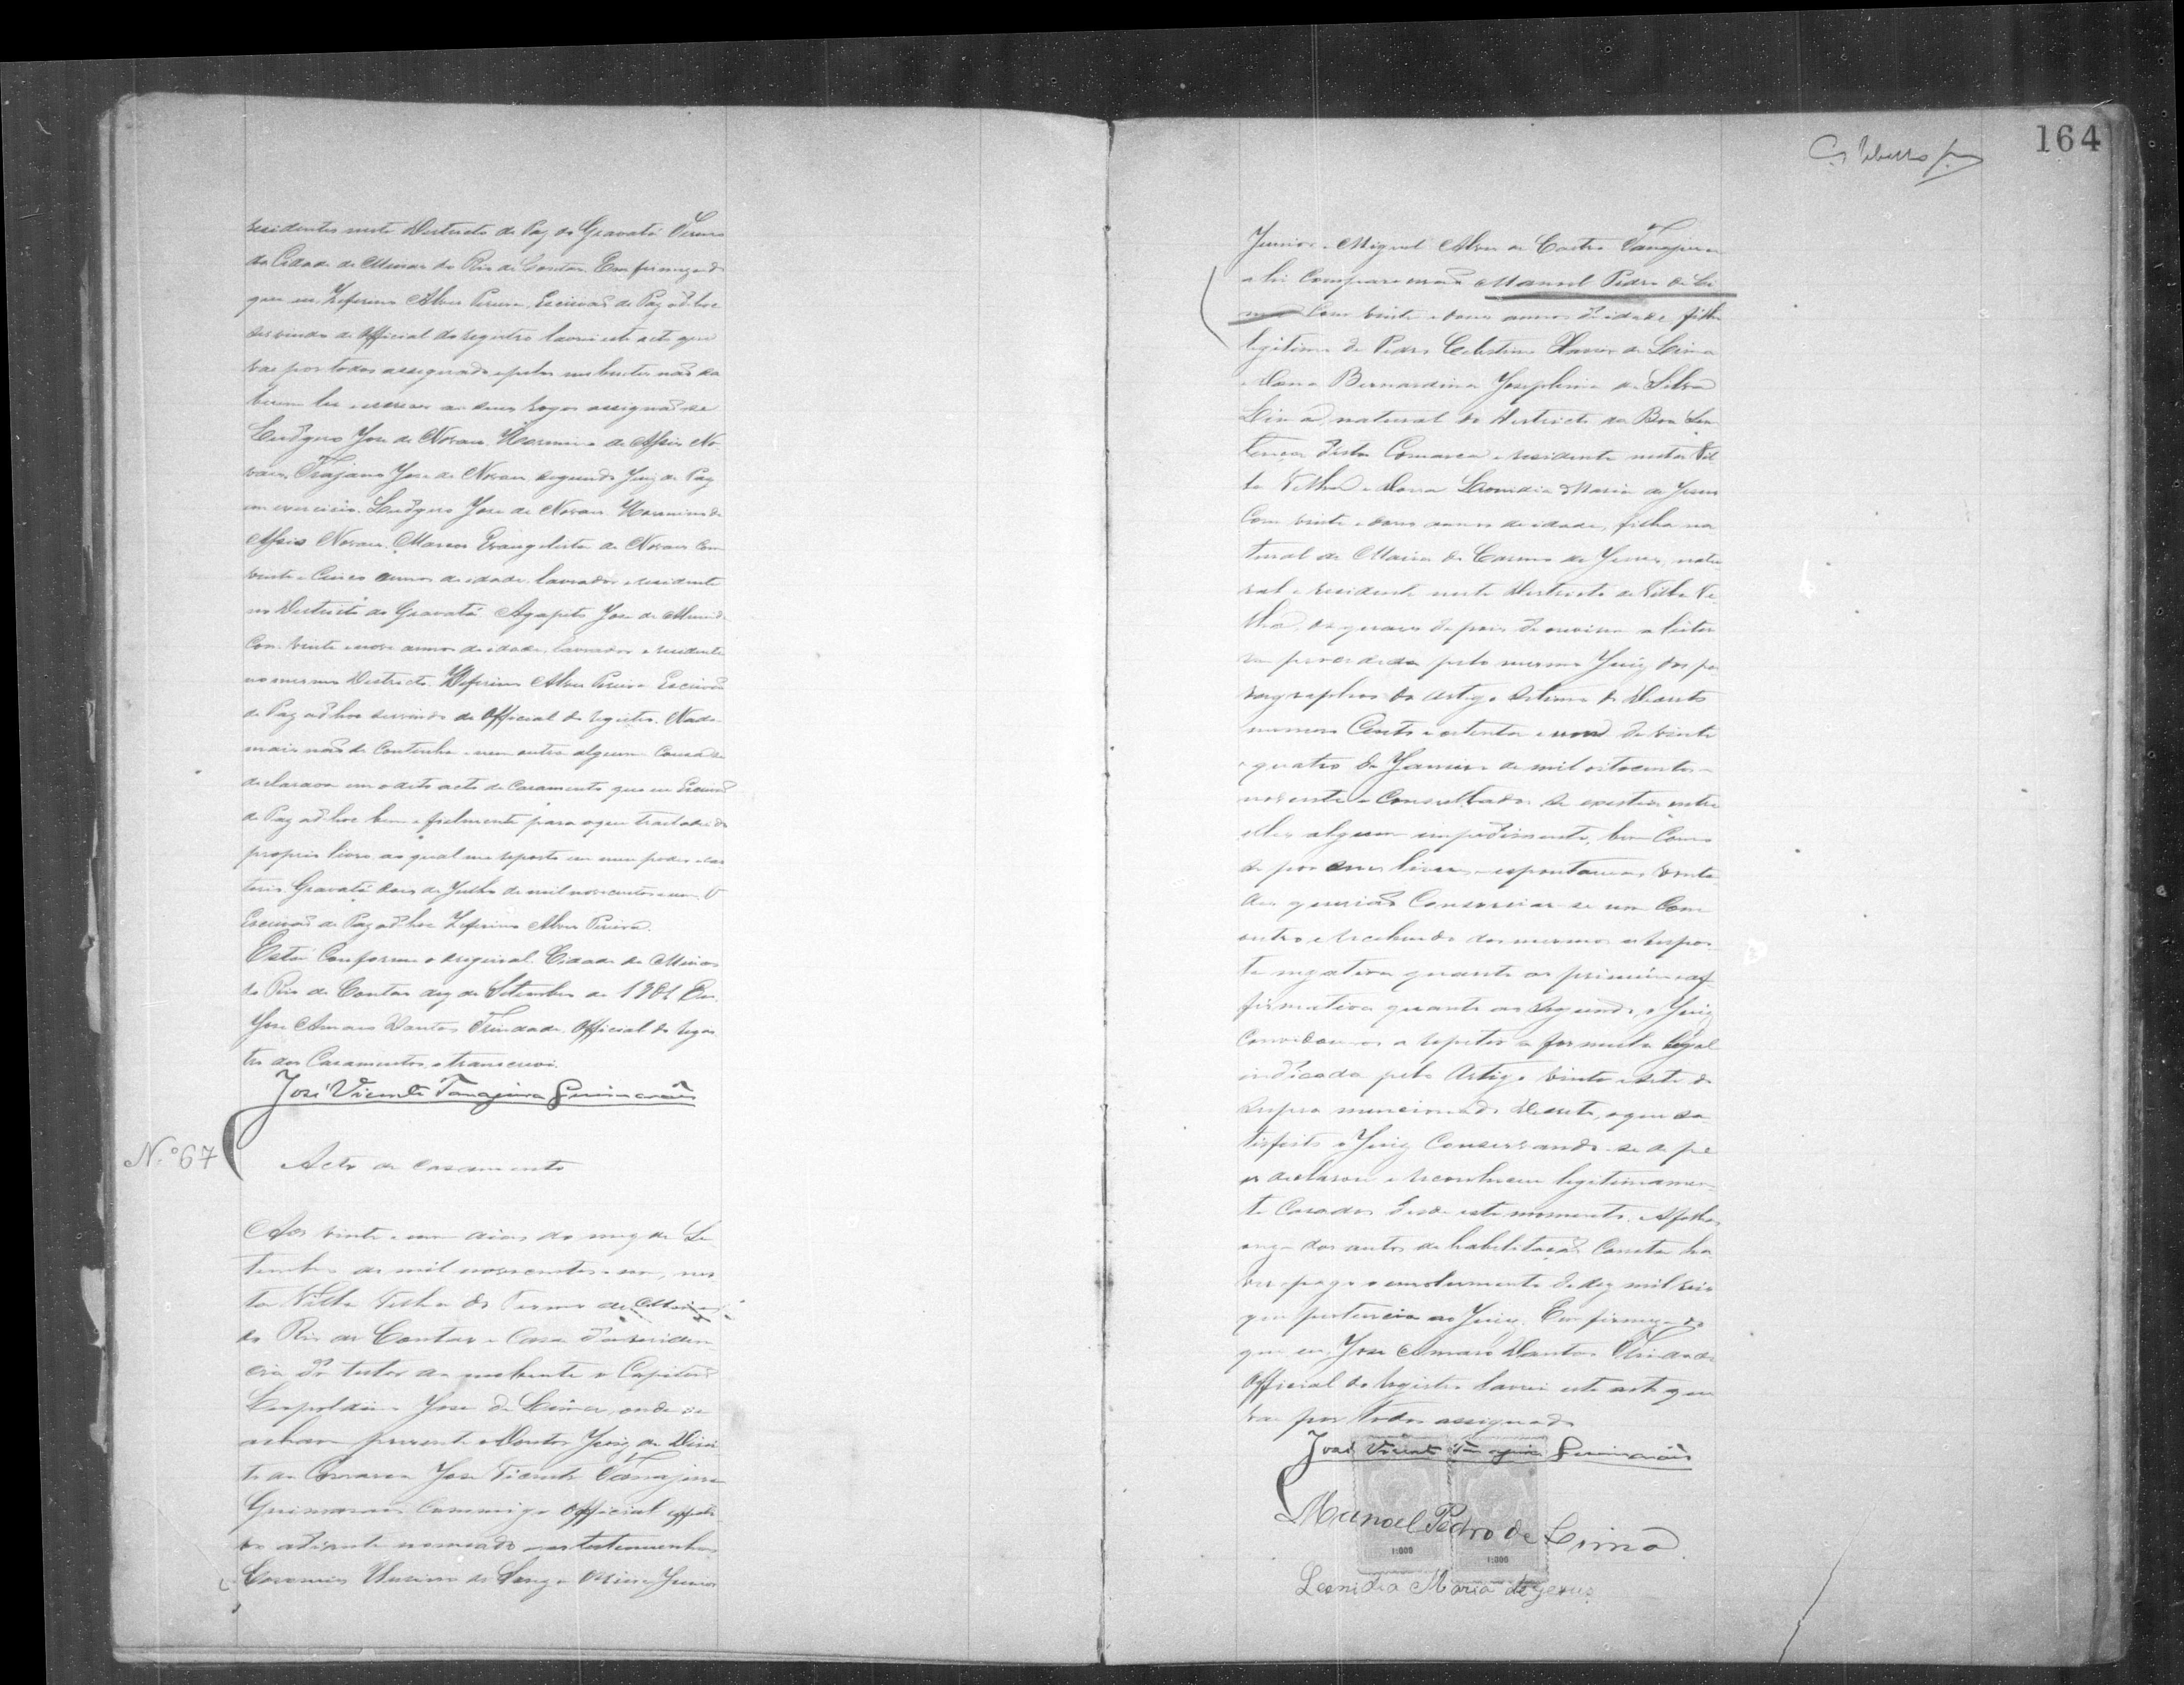 residentes neste Districto de Paz do Gravatá Termo
da Cidade de Minas do Rio de Contas. Em firmeza do
que eu, Zeferino Alves Pereira, Escrivão de Paz ad-hoc
servindo de Official do registro lavrei este acto que
vae por todos assignado e pelos nubentes não sa
berem ler e escrever a seus rogos assignão-se
Ludgero José de Novaes, Herminio de Assis No
vaes, Trajano José de Novaes segundo Juiz de Paz
em exercicio. Ludgero José de Novaes. Herminio de
Assis Novaes. Marcos Evangelista de Novaes com
vinte e cinco annos de idade, lavrador e residente
no Districto do Gravatá. Agapito José de Almeida
com vinte e nove annos de idade, lavrador e residente
no mesmo Districto. Zeferino Alves Pereira Escrivão
de Paz ad-hoc servindo de Official do registro. Nada
mais não se continha e nem outra alguma cousa se
declarava em o dito acto de casamento que eu Escrivão
de Paz ad-hoc bem e fielmente para aqui trasladei do
proprio livro ao qual me reporto em meu poder e car
torio. Gravatá dois de Julho de mil novecentos e um. O
Escrivão de Paz ad-hoc Zeferino Alves Pereira.
Está conforme o original. Cidade de Minas
do Rio de Contas dez de Setembro de 1901. Eu
José Amaro Dantas Trindade, Official do regis
tro dos Casamentos, o transcrevi.
José Vicente Tanajura Guimarães
N.º 67
Acto de casamento
Aos vinte e um dias do mez de Se
tembro de mil novecentos e um, nes
ta Villa Velha do Termo de Minas
do Rio de Contas e casa da residen
cia do tutor da nubente o Capitão
Leopoldino José de Lima, onde se
achava presente o Doutor Juiz de Direi
to da Comarca José Vicente Tanajura
Guimarães commigo Official
adiante nomeado e as testemunhas
Junior
164
Junior e Miguel Alves de Castro Tanajura
ahi compareceram Manoel Pedro de Li
ma com vinte e dous annos de idade, filho
legitimo de Pedro Celestino de Lima
e Dona Bernardina Josephina da Silva
Lima, natural do Districto da Boa Sen
tença desta Comarca e residente nesta Vil
la Velha e Dona Leonidia Maria de Jesus
com vinte e dous annos de idade, filha na
tural de Maria do Carmo de Jesus, natu
ral e residente neste Districto de Villa Ve
lha, os quaes depois de ouvirem a leitu
ra procedida pelo mesmo Juiz dos pa
ragraphos do artigo setimo do Decreto
numero Cento e oitenta e um de vinte
e quatro de Janeiro de mil oitocentos e
noventa e consultados se existia entre
elles algum impedimento, bem como
se por suas livres e espontaneas vonta
des queriam consorciar-se um com
outro e recebendo dos mesmos a respos
ta negativa quanto ao primeiro e af
firmativa quanto ao segundo, o Juiz
convidou-os a repetir a formula legal
indicada pelo Artigo vinte e sete do
supra mencionado Decreto, o que sa
tisfeito o Juiz conservando-se de pé
os declarou e reconheceu legitimamen
te casados desde este momento. A folhas
onze dos autos de habilitação consta ha
ver pago o emolumento de dez mil reis
que pertencia ao Juiz. Em firmeza do
que eu, José Amaro Dantas Trindade
Official do registro lavrei este acto que
vae por todos assignado
José Vicente Tanajura Guimarães
Manoel Pedro de Lima
1:000 1:000
Leonidia Maria de Jesus